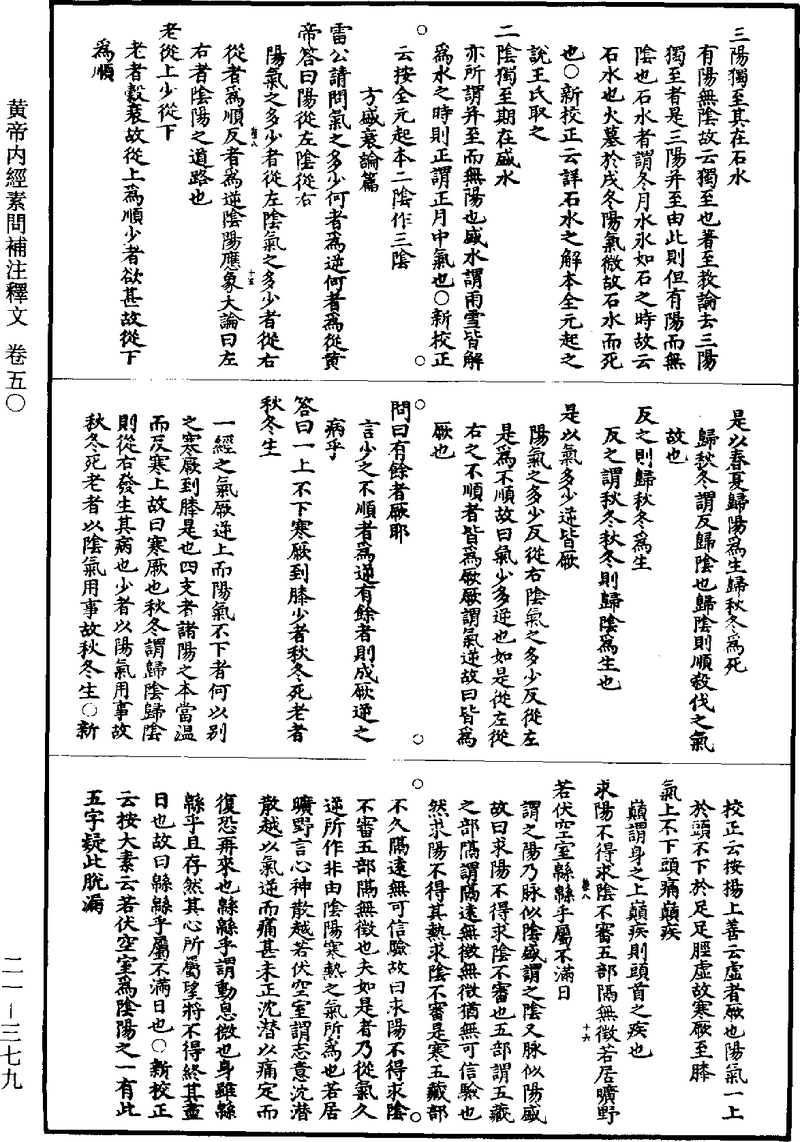 黄帝内經素問補注釋文 卷五〇
二一—三七九
三陽獨至其在石水
有陽無陰故云獨至也著至教論云三陽
獨至者是三陽并至由此則但有陽而無
陰也石水者謂冬月水氷如石之時故云
石水也火墓於戌冬陽氣微故石水而死
也○新校正云詳石水之解本全元起之
說王氏取之
二陰獨至期在盛水
亦所謂并至而無陽也盛水謂雨雪皆解
為水之時則正謂正月中氣也○新校正
云按全元起本二陰作三陰
方盛衰論篇
雷公請問氣之多少何者為逆何者為從黄
帝荅曰陽從左陰從右
陽氣之多少者從左陰氣之多少者從右
從者為順反者為逆陰陽應象大論曰左
右者陰陽之道路也
老從上少從下
老者穀衰故從上為順少者欲甚故從下
為順
十五
是以春夏歸陽為生歸秋冬為死
歸秋冬謂反歸陰也歸陰則順殺伐之氣
故也
反之則歸秋冬為生
反之謂秋冬秋冬則歸陰為生也
是以氣多少逆皆厥
陽氣之多少反從右陰氣之多少反從左
是為不順故曰氣少多逆也如是從左從
右之不順者皆為厥厥謂氣逆故曰皆為
厥也
問曰有餘者厥耶
言少之不順者為逆有餘者則成厥逆之
病乎
荅曰一上不下寒厥到膝少者秋冬死老者
秋冬生
一經之氣厥逆上而陽氣不下者何以别
之寒厥到膝是也四支者諸陽之本當温
而反寒上故曰寒厥也秋冬謂歸陰歸陰
則從右發生其病也少者以陽氣用事故
秋冬死老者以陰氣用事故秋冬生○新
校正云按楊上善云虚者厥也陽氣一上
於頭不下於足足脛虚故寒厥至膝
氣上不下頭痛巔疾
巔謂身之上巔疾則頭首之疾也
求陽不得求陰不審五部隔無徵若居曠野
若伏空室緜緜乎屬不滿日
謂之陽乃脉似陰盛謂之陰又脉似陽盛
故曰求陽不得求陰不審也五部謂五藏
之部隔謂隔遠無徵無徵猶無可信驗也
然求陽不得其熱求陰不審是寒五藏部
不久隔遠無可信驗故曰求陽不得求陰
不審五部隔無徵也夫如是者乃從氣久
逆所作非由陰陽寒熱之氣所為也若居
曠野言心神散越若伏空室謂志意沈潛
散越以氣逆而痛甚未正沈潜以痛定而
復恐再來也緜緜乎謂動息微也身雖緜
緜乎且存然其心所屬望將不得終其盡
日也故曰緜緜乎屬不滿日也○新校正
云按大素云若伏空室為陰陽之一有此
五字疑此脱漏
十六